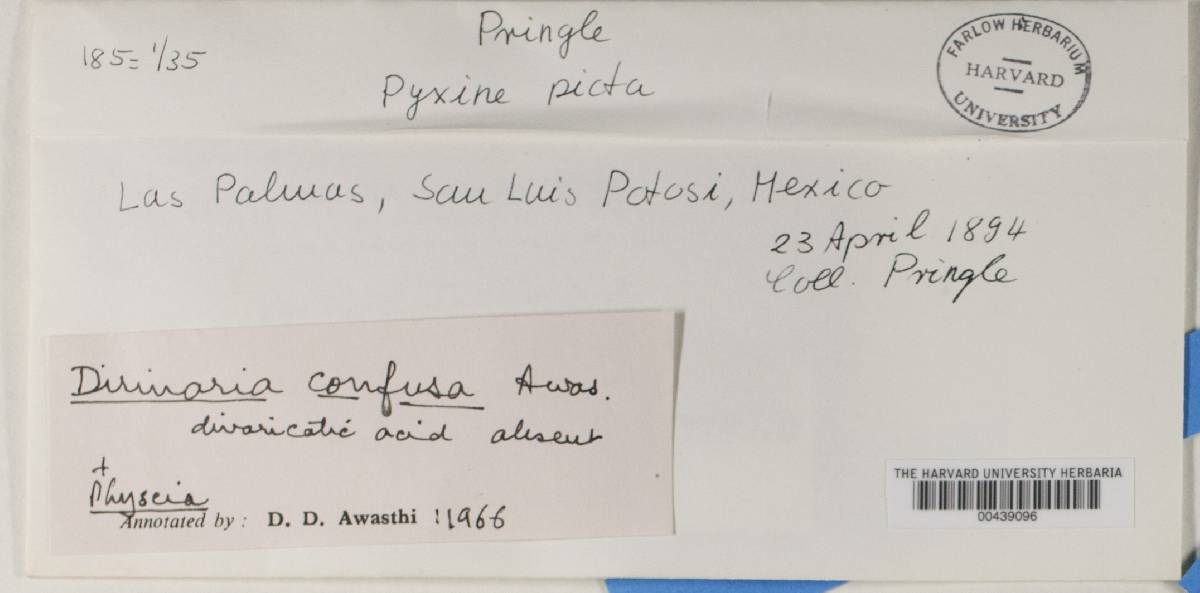 Pringle
185= 1/35
Pyxine picta
FARLOW HERBARIUM
HARVARD
UNIVERSITY
Las Palmas, San Luis Potosi, Mexico
23 April 1894
Coll. Pringle
Dirinaria confusa Awas.
divaricatic acid absent
+
Physcia
Annotated by: D. D. Awasthi 1966
THE HARVARD UNIVERSITY HERBARIA
00439096